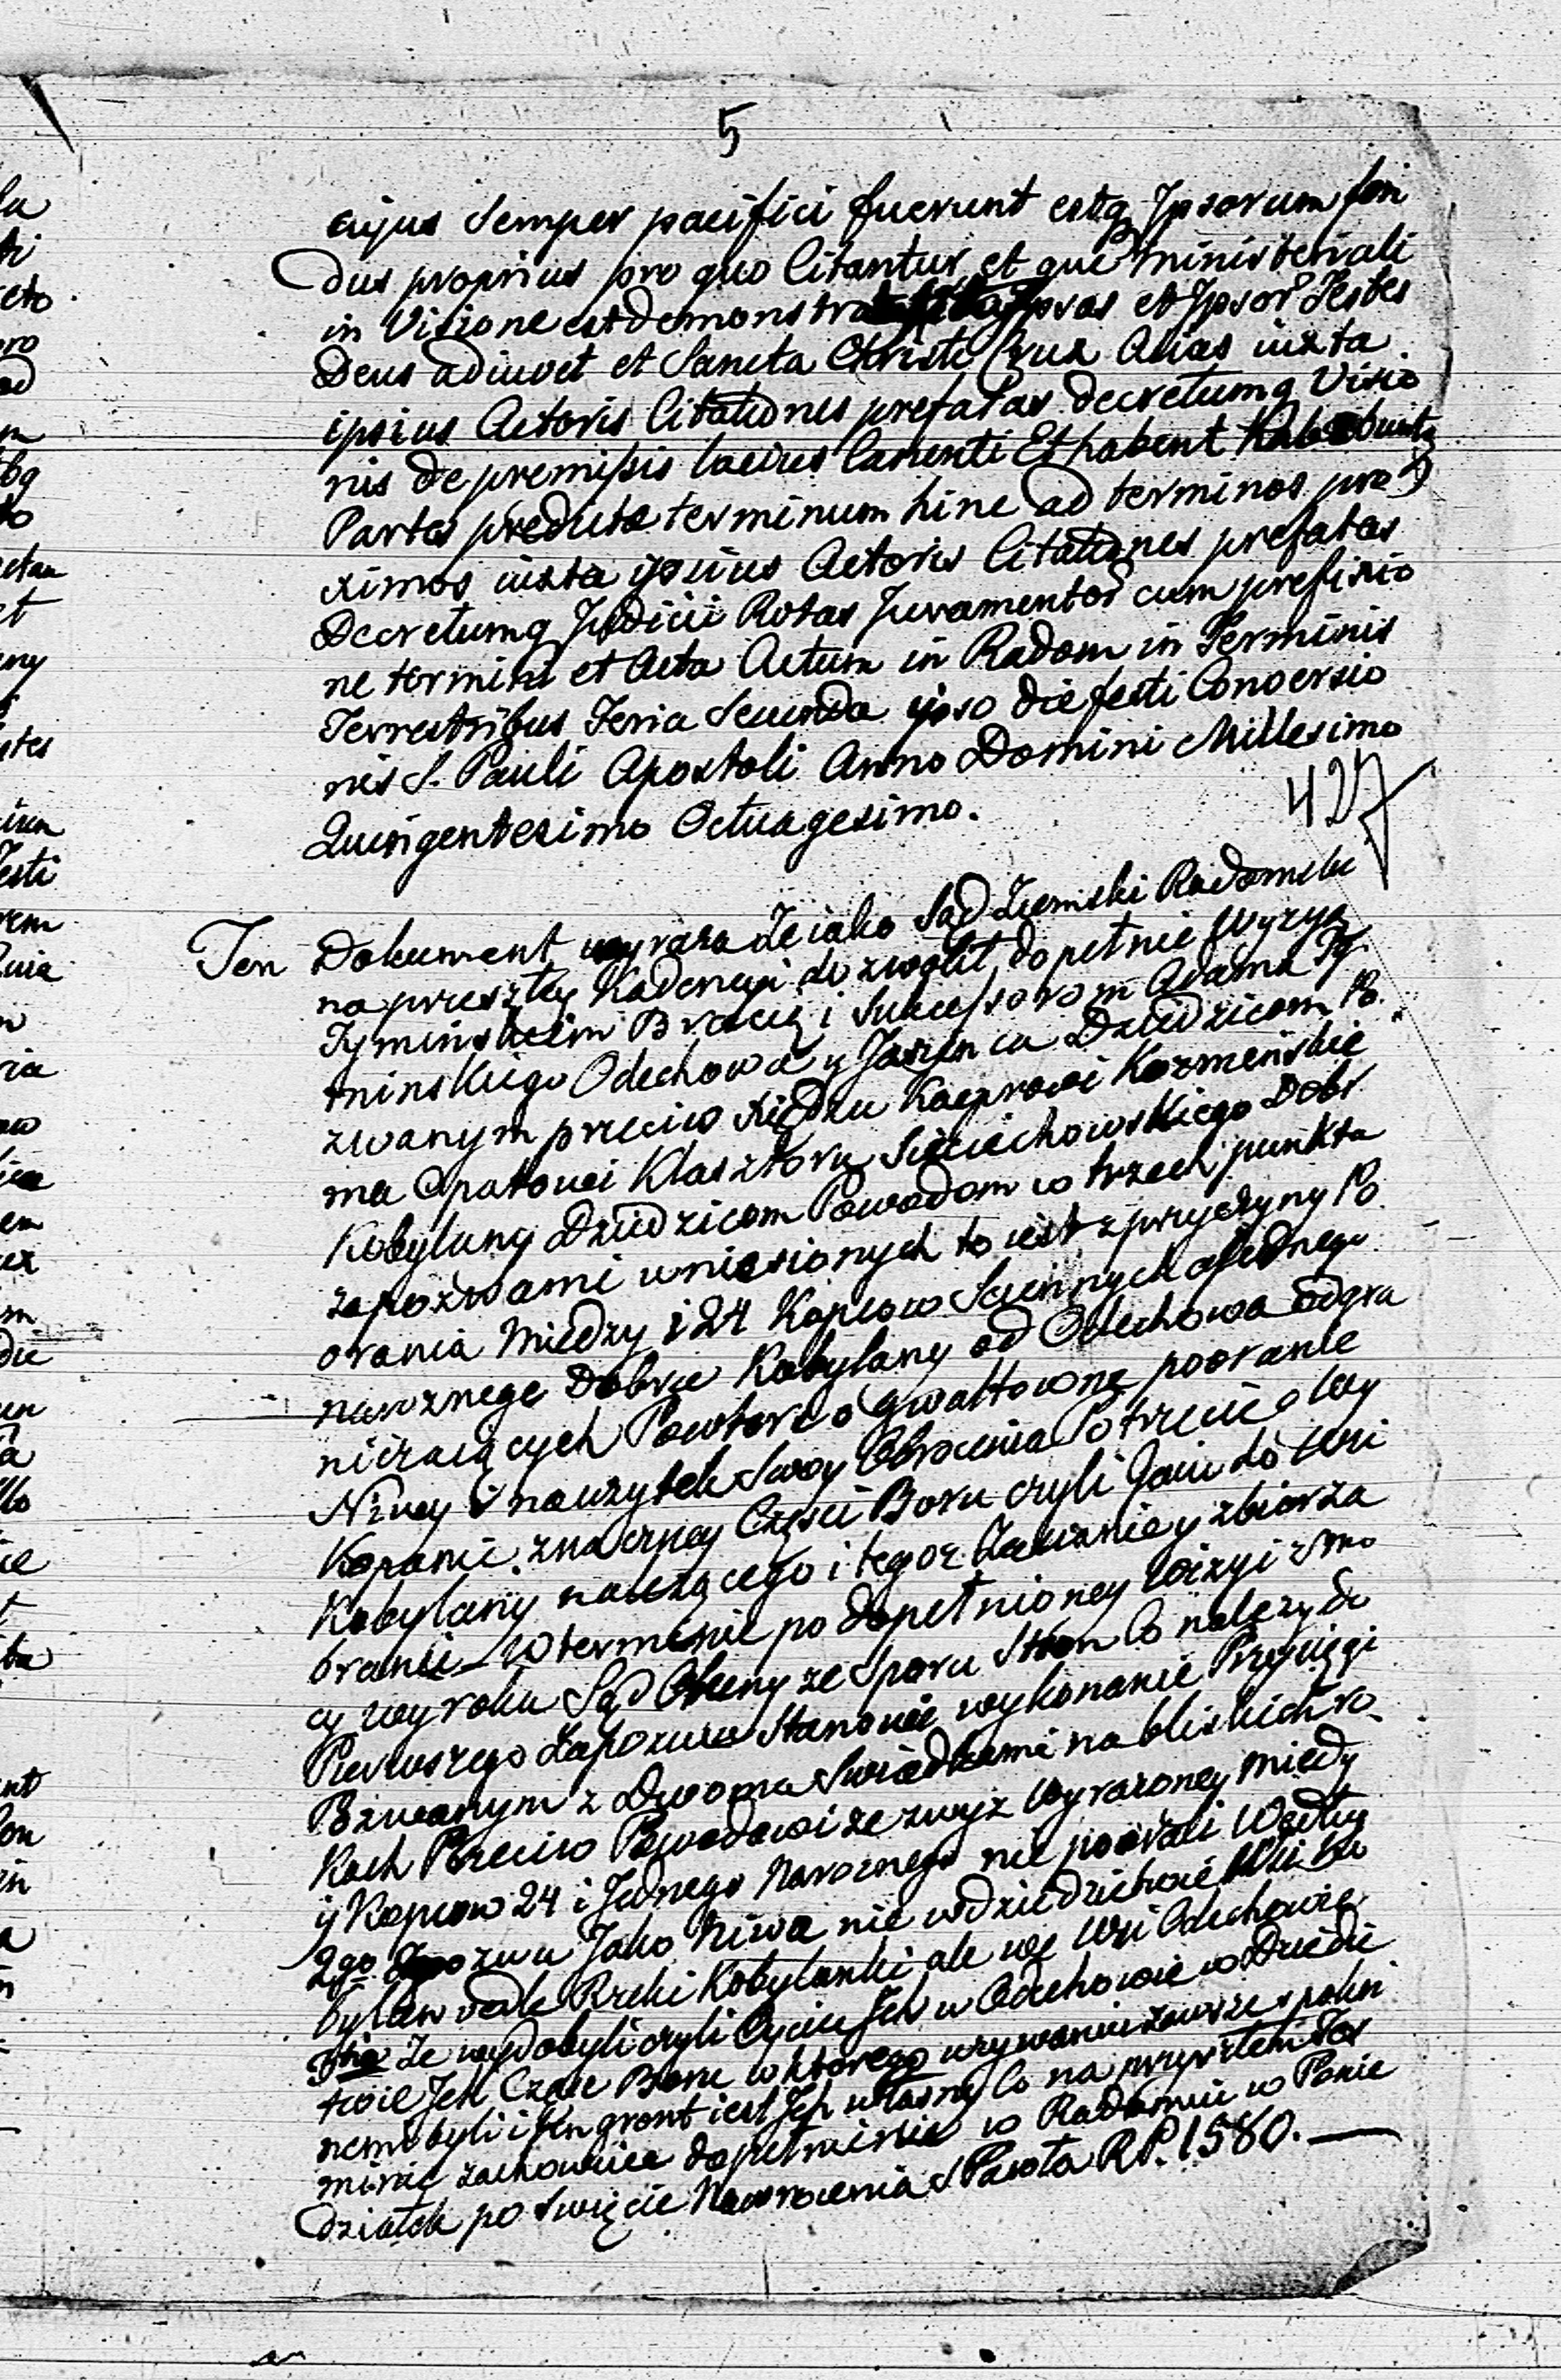 5
cujus Semper pacifici fuerunt estq Ipsorum fun
dus proprius pro quo Citantur et que ministeriali
in Visione est demonstrata Ipsos et Ipsor Testes
Deus adiuvet et Sancta Christi Crux Alias iuxta
ipsius Actoris Citationes prefatas decretumq Visio
nis de premissis lacius Canenti Et habent
Partes predicte terminum hinc ad terminos pro
ximos iuxta ipsius Actoris Citationes prefatas
Decretumq Judicii Rotas Juramentor cum prefixio
ne termini et Acta Actum in Radom in Terminis
Terrestribus Feria Secunda ipso die festi Conversio
nis S. Pauli Apostoli Anno Domini Millesimo
Quingentesimo Octuagesimo.
427
Ten Dokument wyraza Ze iako Sąd Ziemski Radomski
na przeszłey Kadencyi dozwolił dopełnie Wyzyą
Tyminskiem Bracią i Sukcessorom Adama Ty
minskiego Odechowa y Jasienca Dziedzicom Po
zwanym przeciw Xiędzu Kacprowi Kozmenskie
ma Opatowi Klasztoru Sieciechowskiego Dobr
Kobylany Dziedzicom Powodom w trzech punkta
zapozwami wniesionych to iest z przyczyny Po
orania Miedzy i 24 Kopcow Sciennych a Jednego
naroznego Dobra Kobylany od Odechowa odgra
niczaiących Powtore o gwałtowne pooranie
Niwy i na uzytek Swoy Obrocenia Potrzecie o Wy
Kopanie znaczney Częsci Boru czyli Gaiu do Wsi
Kobylany nalezącego i tegoz Zawzaniey zbioru za
branie W terminie po dopełnioney Wizyi z mo
cy wyroku Sąd Obecny ze Sporu Stron Co nalezy do
Pierwszego Zapozwu Stanowi wykonanie Przysięgi
Pozwanym z Dwoma Swiadkami na bliskich ro
kach Przeciw Powodowi ze zwyz wyrazoney Miedzy
y Kopcow 24 i Jednego Naroznego nie poorali Według
2go Zapozwu Jako Niwa nie w dziedzictwie Wsi Ko
bylan wedle Rzeki Kobylanki ale we Wsi Odechowie
3tio Ze wydobyli czyli Oycie Jch w Odechowie w Dziedzi
twie Jch Częsc Boru w ktorego uzywaniu zawsze spokoy
nemi byli i ten gront iest Jch własny Co na przyszłem Ter
minie zachowuiee dopełnienie w Radomiu w Ponie
działek po Swięcie Nawrocenia S Pawła R.P. 1580.